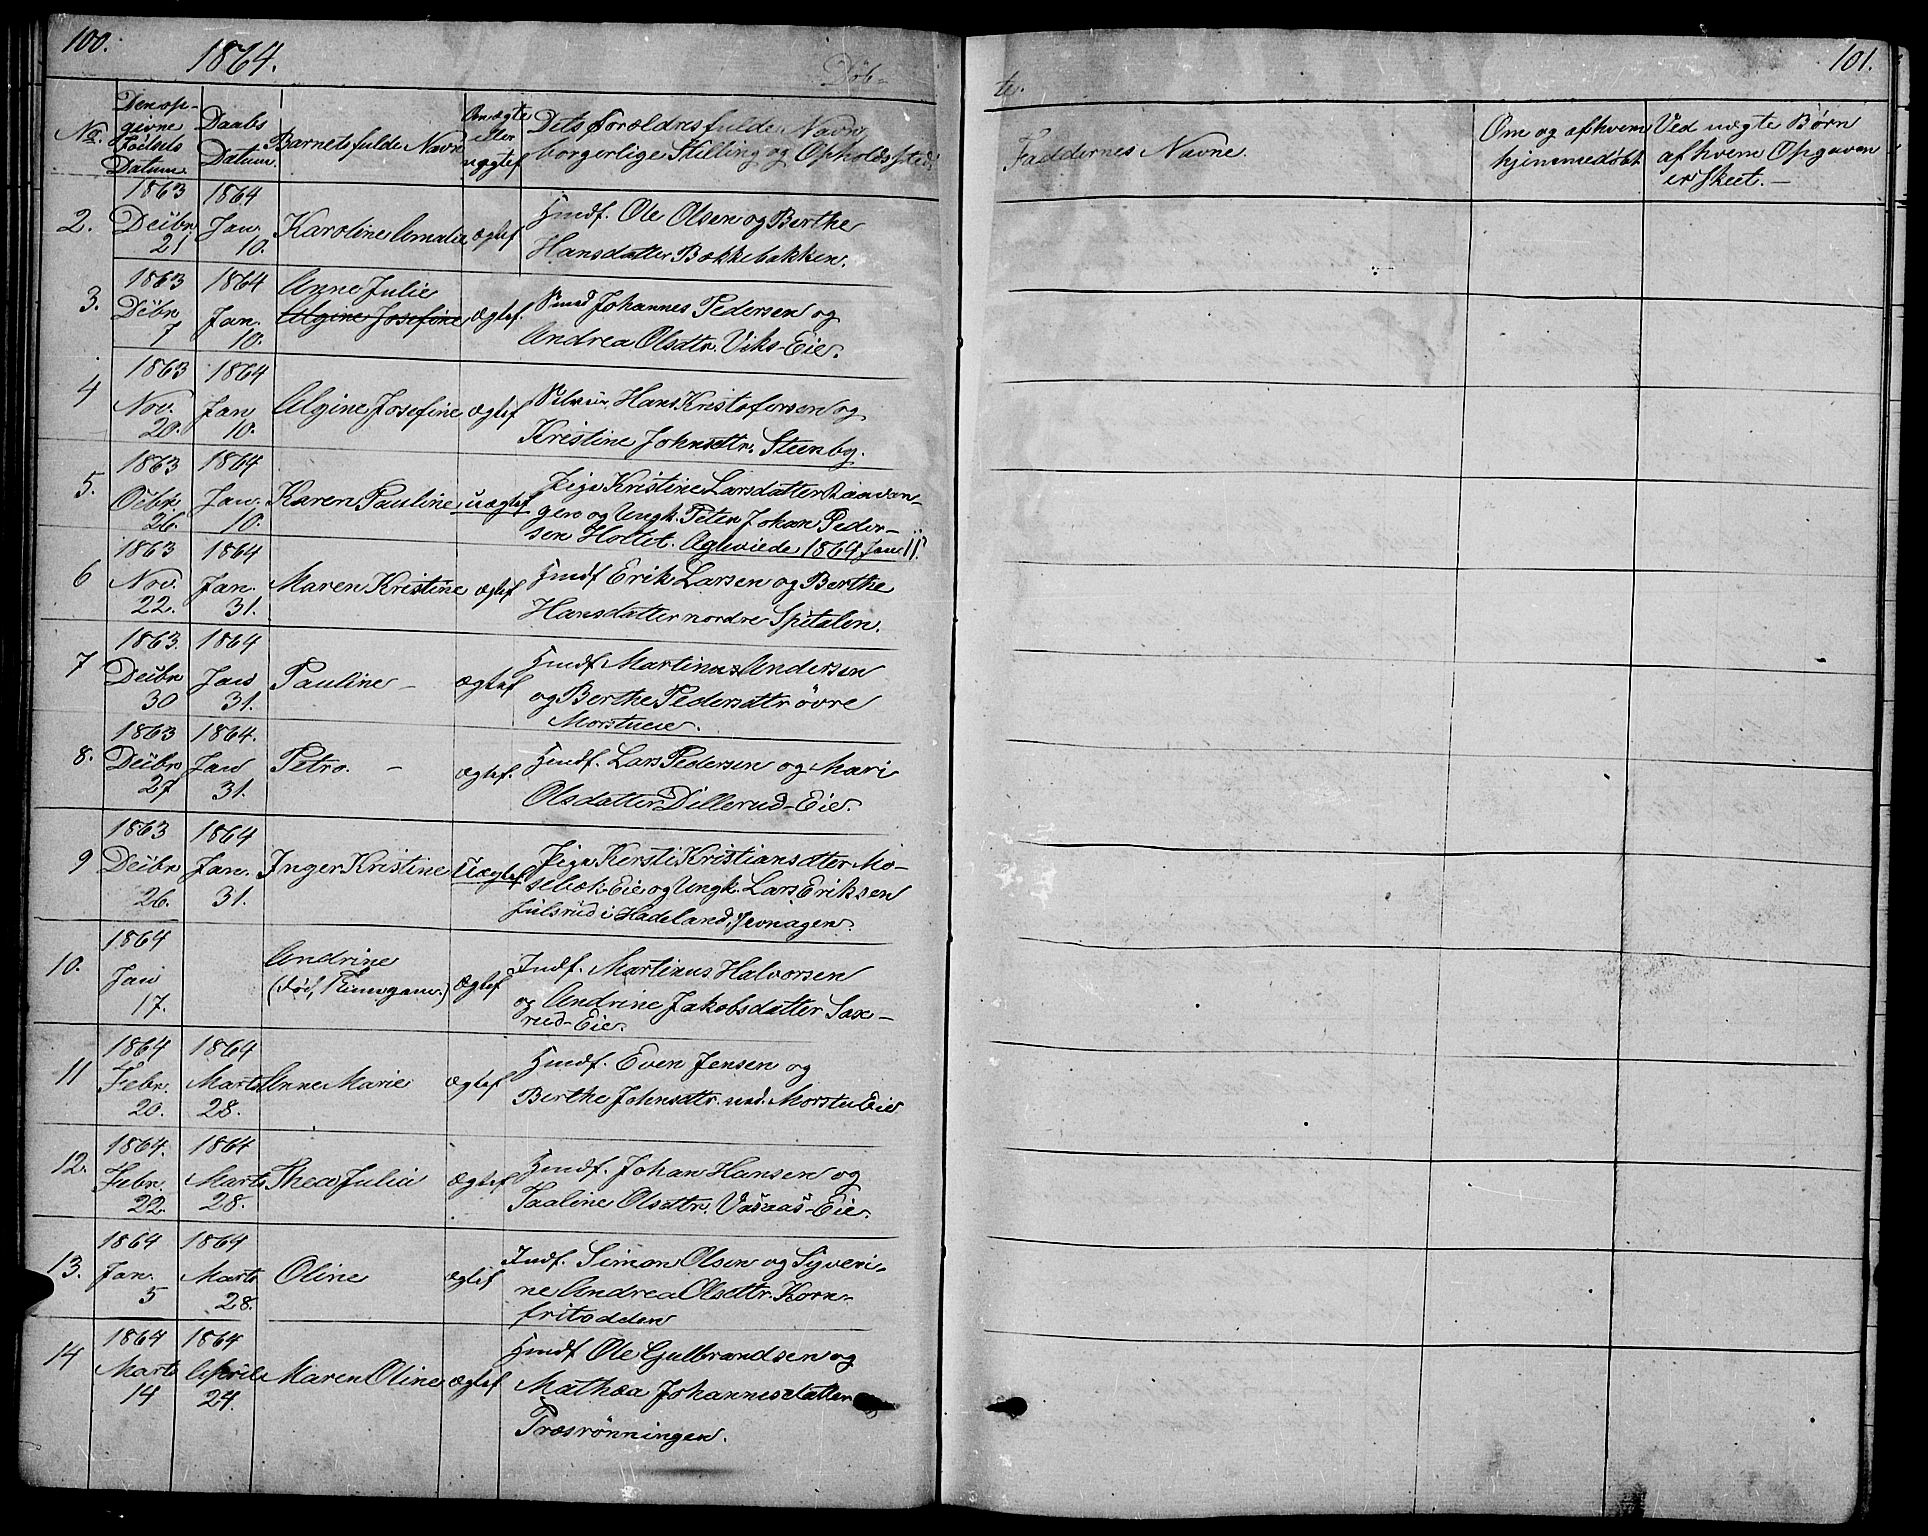 100.
1864.
Døb-
No.
Den op-
givne
Fødsels
Datum
Daabs
Datum.
Barnets fulde Navn
Om ægte
eller
uægtef
Dets Forældres fulde Navn,
borgerlige Stilling og Opholdssted.
2.
1863
Decbr.
21
1864
Jan.
10.
Karoline Amalie
ægtef
Hmdf. Ole Olsen og Berthe
Hansdatter Bækkebakken.
3.
1863
Decbr
7
1864
Jan.
10.
Anne Julie
Algine Josefine
ægtef.
Smed Johannes Pedersen og
Andrea Olsdtr. Viks-Eie.
4
1863
Nov.
20.
1864
Jan
10.
Algine Josefine
ægtef
Selveier Hans Kristofersen og
Kristine Johnsdtr. Steenby.
5.
1863
Octbr.
26.
1864
Jan.
10.
Karen Pauline
uægtef
Pige Kristine Larsdatter
gen og Ungk. Peter Johan Peder-
sen Holtet. Ægteviede 1864 Jan 11.
6
1863
Nov.
22.
1864
Jan.
31.
Maren Kristine
ægtef
Hmdf Erik Larsen og Berthe
Hansdatter nordre Spitalen.
7
1863.
Decbr
30
1864
Jan
31.
Pauline -
ægtef
Hmdf. Martinus Andersen
og Berthe Pedersdtr øvre
Morstueie.
8.
1863
Decbr
27
1864.
Jan
31.
Petra. -
ægtef.
Hmdf. Lars Pedersen og Mari
Olsdatter Dillerud-Eie.
9
1863
Decbr
26.
1864
Jan.
31.
Inger Kristine
Uægtef
Pige Kersti Kristiansdtter Mo-
sebæk-Eie og Ungk. Lars Eriksen
Fulsrud i Hadeland, Jevnager.
10.
1864
Jan
17.
Andrine
(død,
ægtef
Indf. Martinus Halvorsen
og Andrine Jakobsdatter Saxe-
rud-Eie.
11
1864
Febr.
20.
1864
Marts
28.
Anne Marie
ægtef
Hmdf. Even Jensen og
Berthe Johnsdtr. ned. Morstu Eie
12.
1864.
Febr.
22.
1864
Marts
28.
Thea Julie
ægtef
Hmdf. Johan Hansen og
Paaline Olsdtr. Vasaas-Eie.
13.
1864
Jan.
5
1864
Marts
28.
Oline
ægtef
Indf. Simon Olsen og Syveri-
ne Andrea Olsdtr. Korn-
fritodden
14
1864
Marts
14
1864
Aprile
24.
Maren Oline
ægtef
Hmdf Ole Gulbrandsen og
Mathea Johannesdatter
Træsrønningen.
101.
te.
Faddernes Navne.
Om og af hvem
hjemmedøbt.
Ved uægte Børn
af hvem Opgaven
er skeet. -